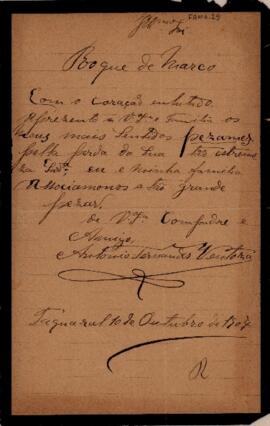 Roque de Marco
Com o coração enlutado
Aprezento á V. Sª e familia os
meus mais sentidos pezames
pella perda da sua tão
eu e minha familia
Associamonos a tão grande
pezar.
de V. Sª Compadre e
Amigo
Antonio Fernandes Ventora
Taquaral 10 de Outubro de
R